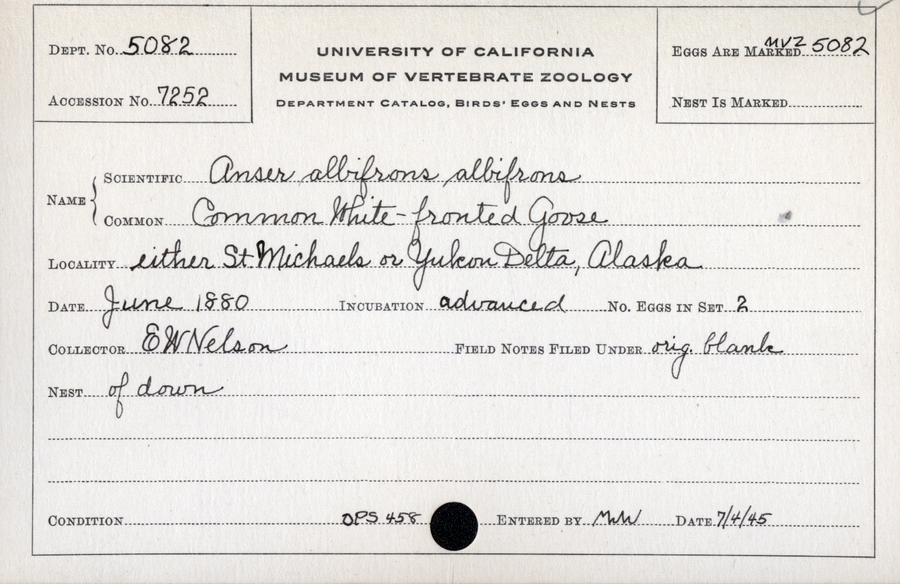 DEPT. No. 5082
ACCESSION No. 7252
UNIVERSITY OF CALIFORNIA
MUSEUM OF VERTEBRATE ZOOLOGY
DEPARTMENT CATALOG, BIRDS' EGGS AND NESTS
EGGS ARE MARKED MVZ 5082
NEST IS MARKED
NAME
SCIENTIFIC Anser albifrons albifrons
COMMON Common White-fronted Goose
LOCALITY either St. Michaels or Yukon Delta, Alaska
DATE June 1880 INCUBATION advanced NO. EGGS IN SET 2
COLLECTOR E W Nelson FIELD NOTES FILED UNDER orig. blank
NEST of down
CONDITION OPS 458 ENTERED BY DATE 7/4/45